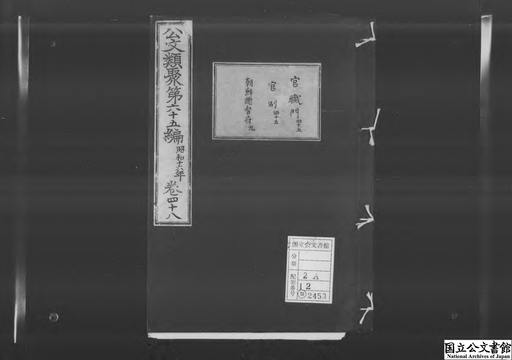 公文類聚第六十五編 昭和十六年 卷四十八
官職門 四十五
官制 四十五
朝鮮總督府九
国立公文書館
分類
配架番号
2A
12
2453
国立公文書館
National Archives of Japan